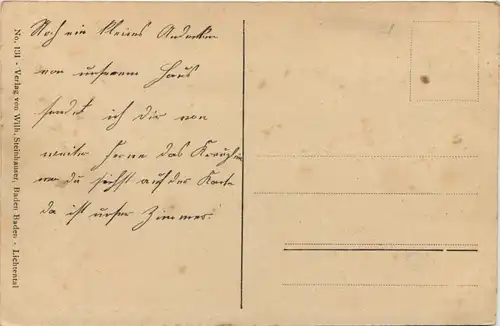 Noch ein kleines Andenken
von unserem Haus
sendet ich dir von
weiter Ferne das Kreuzlein
wo du siehst auf der Karte
da ist unser Zimmer.
No. 131 - Verlag von Wilh. Steinhauser, Baden-Baden - Lichtental